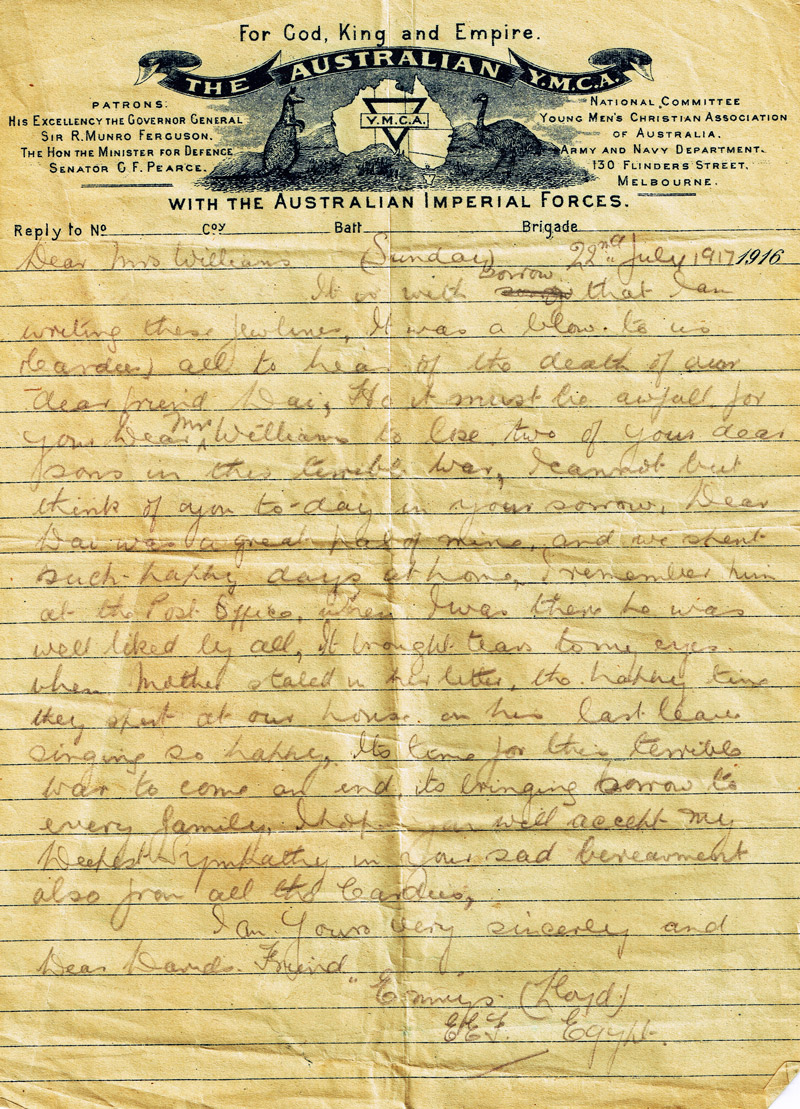 For God, King and Empire.
THE AUSTRALIAN Y.M.C.A.
PATRONS:
HIS EXCELLENCY THE GOVERNOR GENERAL
SIR R. MUNRO FERGUSON.
THE HON THE MINISTER FOR DEFENCE
SENATOR G.F. PEARCE.
Y.M.C.A.
NATIONAL COMMITTEE
YOUNG MEN'S CHRISTIAN ASSOCIATION
OF AUSTRALIA.
ARMY AND NAVY DEPARTMENT.
130 FLINDERS STREET.
MELBOURNE.
WITH THE AUSTRALIAN IMPERIAL FORCES.
Reply to No Coy Batt Brigade
Dear Mrs Williams (Sunday) 22nd July 1917 1916
It is with sorrow that I am
writing these few lines, It was a blow to us
all to hear of the death of our
dear friend Dai, Ho it must be awfull for
you Dear Mrs Williams to lose two of your dear
sons in this terrible War, I cannot but
think of you to-day in your sorrow, Dear
Dai was a great pal of mine, and we spent
such happy days at home, I remember him
at the Post Office, when I was there he was
well liked by all, It brought tears to my eyes
when Mother stated in her letter, the happy time
they spent at our house on his last leave
singing so happy, Its time for this terrible
War to come an end, its bringing sorrow to
every family, I hope you will accept my
Deepest Sympathy in your sad berearment
also from all the
I am Yours Very sincerly and
Dear Davids Friend
Emrys (Lloyd)
E.E.F. Egypt.